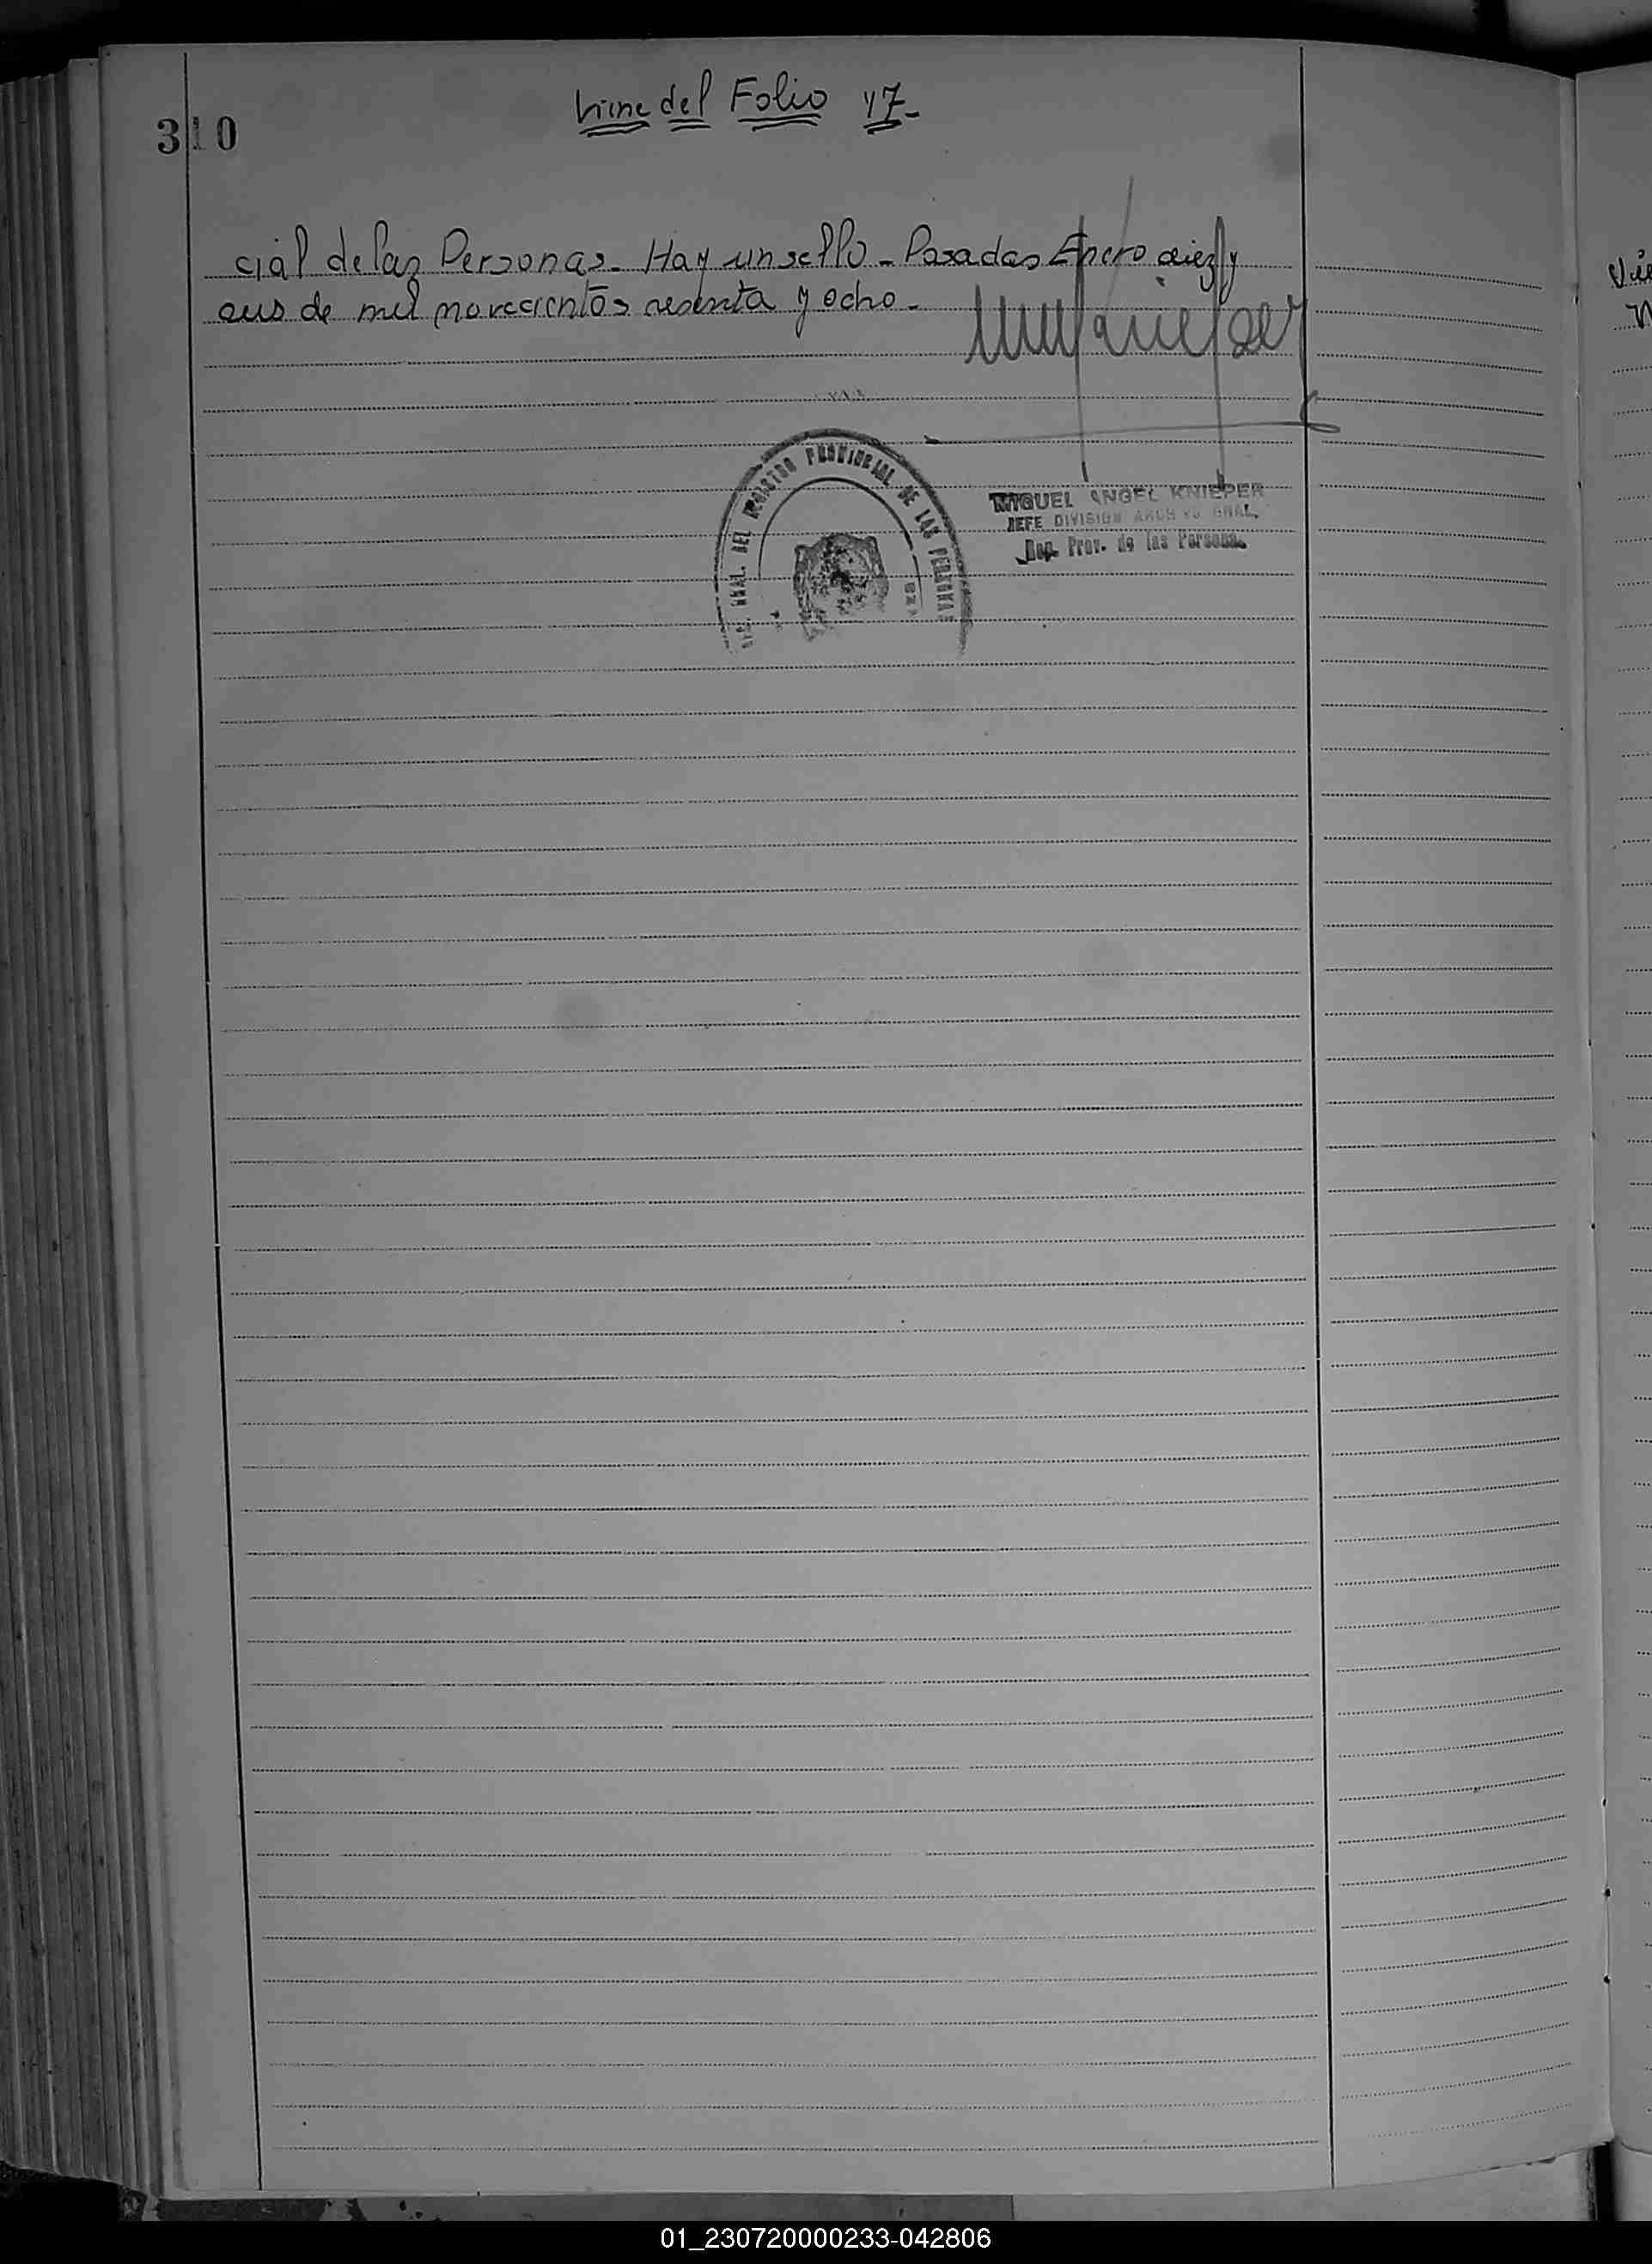 310
Viene del Folio 47-
cial de las Personas. Hay un sello - Posadas Enero diez y
seis de mil novecientos sesenta y ocho -
GRAL. DEL REGISTRO PROVINCIAL DE LAS PERSONAS
MIGUEL ANGEL KNIEPER
JEFE DIVISION ARCHIVO GRAL.
Reg. Prov. de las Personas
01_230720000233-042806